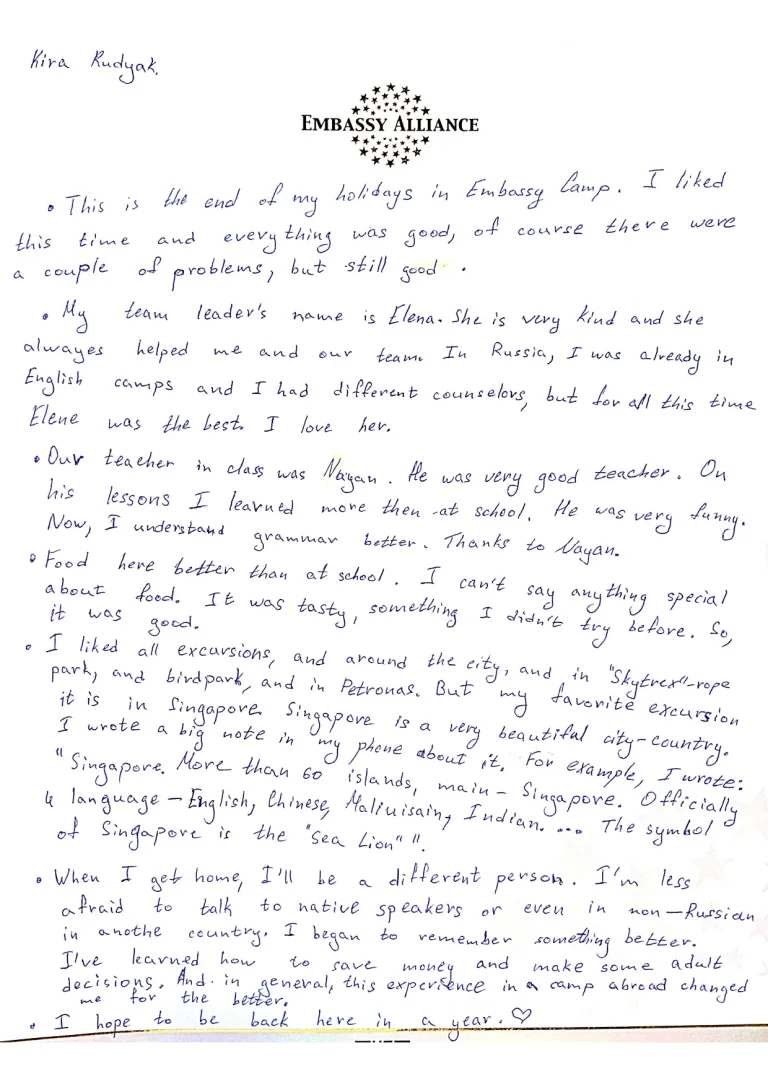 Kira Rudyak.
EMBASSY ALLIANCE
• This is the end of my holidays in Embassy Camp. I liked
this time and everything was good, of course there were
a couple of problems, but still good.
• My team leader's name is Elena. She is very kind and she
alwayes helped me and our team. In Russia, I was already in
English camps and I had different counselors, but for all this time
Elene was the best. I love her.
• Our teacher in class was Nayan. He was very good teacher. On
his lessons I learned more then at school. He was very funny.
Now, I understand grammar better. Thanks to Nayan.
• Food here better than at school. I can't say anything special
about food. It was tasty, something I didn't try before. So,
it was good.
• I liked all excursions, and around the city, and in "Skytrex"-rope
park, and birdpark, and in Petronas. But my favorite excursion
it is in Singapore. Singapore is a very beautiful city-country.
I wrote a big note in my phone about it. For example, I wrote:
"Singapore. More than 60 islands, main - Singapore. Officially
4 language - English, Chinese, Maliuisain, Indian. ... The symbol
of Singapore is the "Sea Lion"".
• When I get home, I'll be a different person. I'm less
afraid to talk to native speakers or even in non-Russian
in anothe country. I began to remember something better.
I've learned how to save money and make some adult
decisions. And in general, this experience in a camp abroad changed
me for the better.
• I hope to be back here in a year. ♡